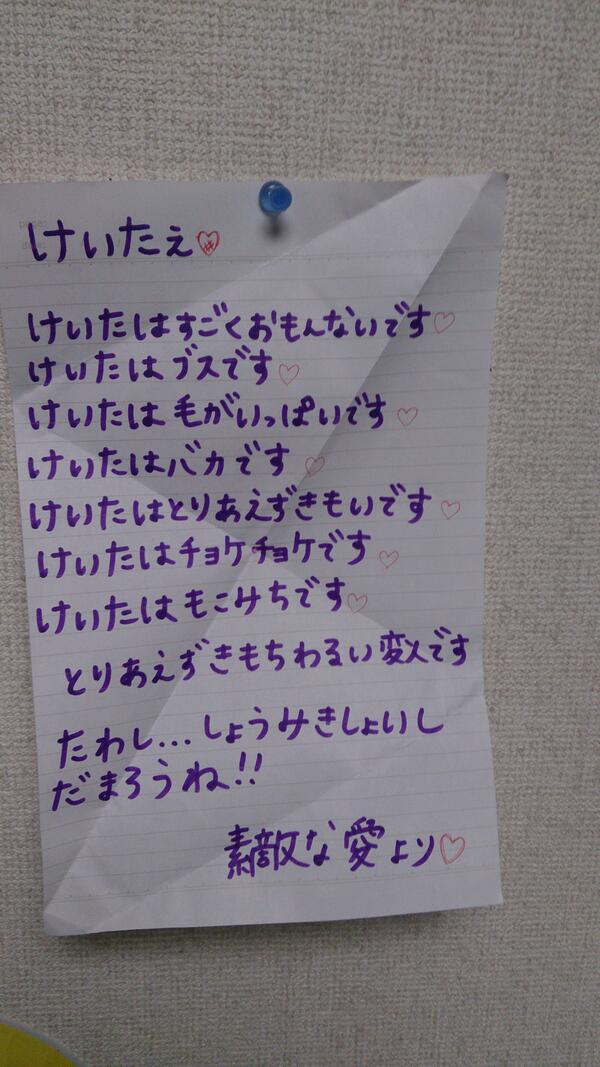 けいたぇ♡
けいたはすごくおもんないです♡
けいたはブスです♡
けいたは毛がいっぱいです♡
けいたはバカです♡
けいたはとりあえずきもいです♡
けいたはチョケチョケです♡
けいたはもこみちです♡
とりあえずきもちわるい変人です
たわし...しょうみきしょいし
だまろうね!!
素敵な愛より♡